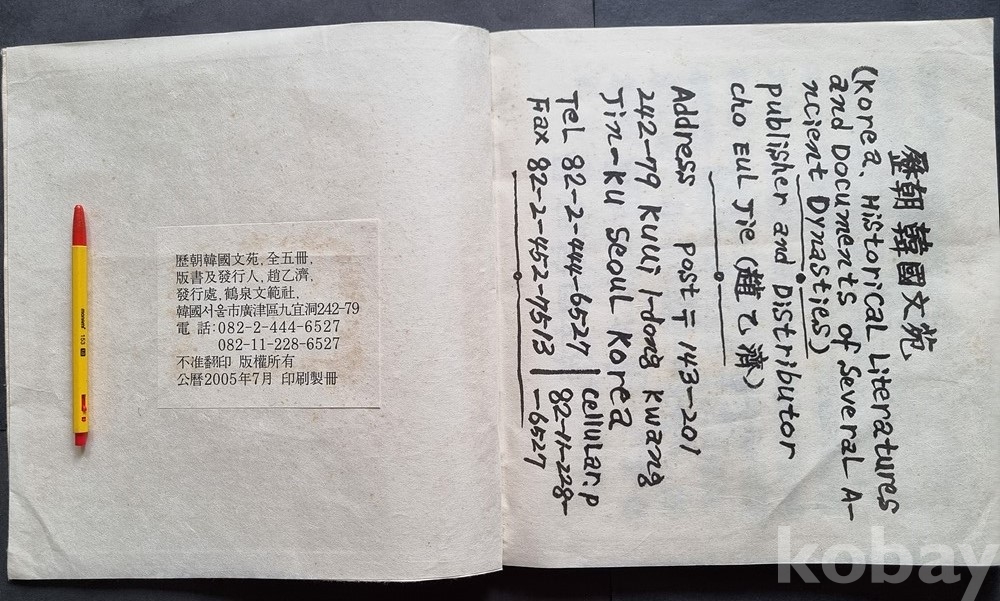 歷朝韓國文苑, 全五冊,
版書及發行人, 趙乙濟,
發行處, 鶴泉文範社,
韓國서울市廣津區九宜洞242-79
電話:082-2-444-6527
082-11-228-6527
不准翻印 版權所有
公曆2005年7月 印刷製冊
歷朝韓國文苑
(Korea, Historical Literatures
and Documents of Several A-
ncient Dynasties)
publisher and Distributor
cho EUL Jie (趙乙濟)
Address post〒143-201
242-79 Kuui 1-dong Kwang
Jin-Ku Seoul Korea
Tel 82-2-444-6527 | cellular.p
Fax 82-2-452-7513 | 82-11-228-
-6527
monami 153
kobay